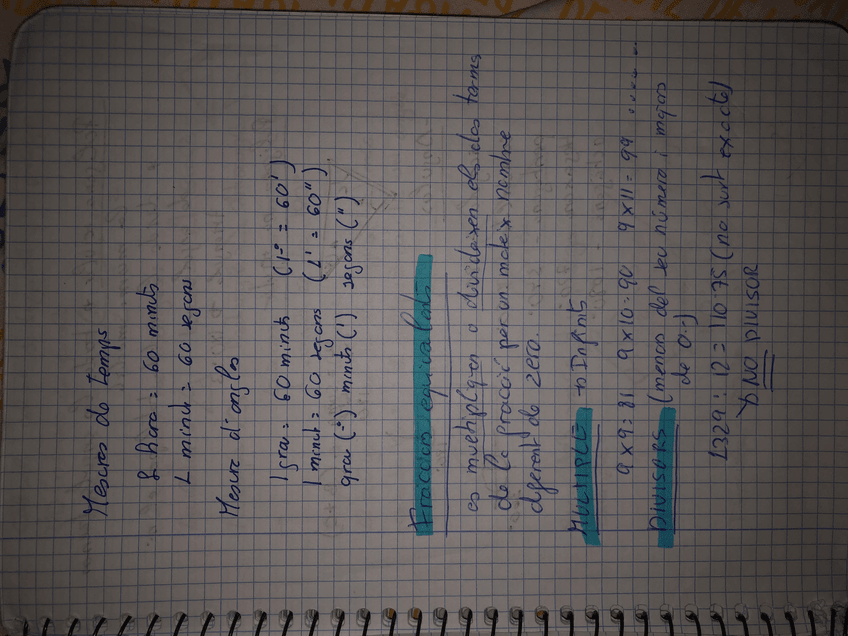 Mesures de temps
1 hora = 60 minuts
1 minut = 60 segons
Mesura d'angles
1 grau = 60 minuts (1º = 60')
1 minut = 60 segons (1' = 60")
grau (º) minuts (') segons (")
Fraccions equivalents
es multipliquen o divideixen els dos termes
de la fracció per un mateix nombre
diferent de zero.
MULTIPLE → Infinits
9 x 9 = 81 9 x 10 = 90 9 x 11 = 99 ......
DIVISORS (menors del seu número i majors
de 0)
1329 : 12 = 110.75 (no surt exacte)
↳ NO DIVISOR